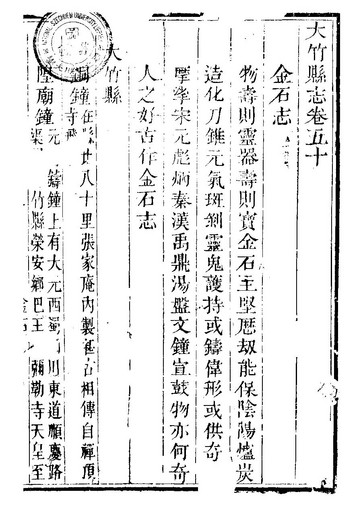 大竹縣志卷五十
金石志
物壽則靈器壽則寶金石至堅歷刼能保陰陽爐炭
造化刀錐元氣斑剝靈鬼護持或鑄偉形或供奇
摩挲宋元彪炳秦漢禹鼎湯盤文鐘宣鼓物亦何奇
人之好古作金石志
大竹縣
銅鐘在縣北八十里張家庵內製極古相傳自禪頂
寺飛
陞廟鐘元 鑄鐘上有大元西蜀 川東道順慶路
渠 竹縣榮安鄉巴王 彌勒寺天皇至